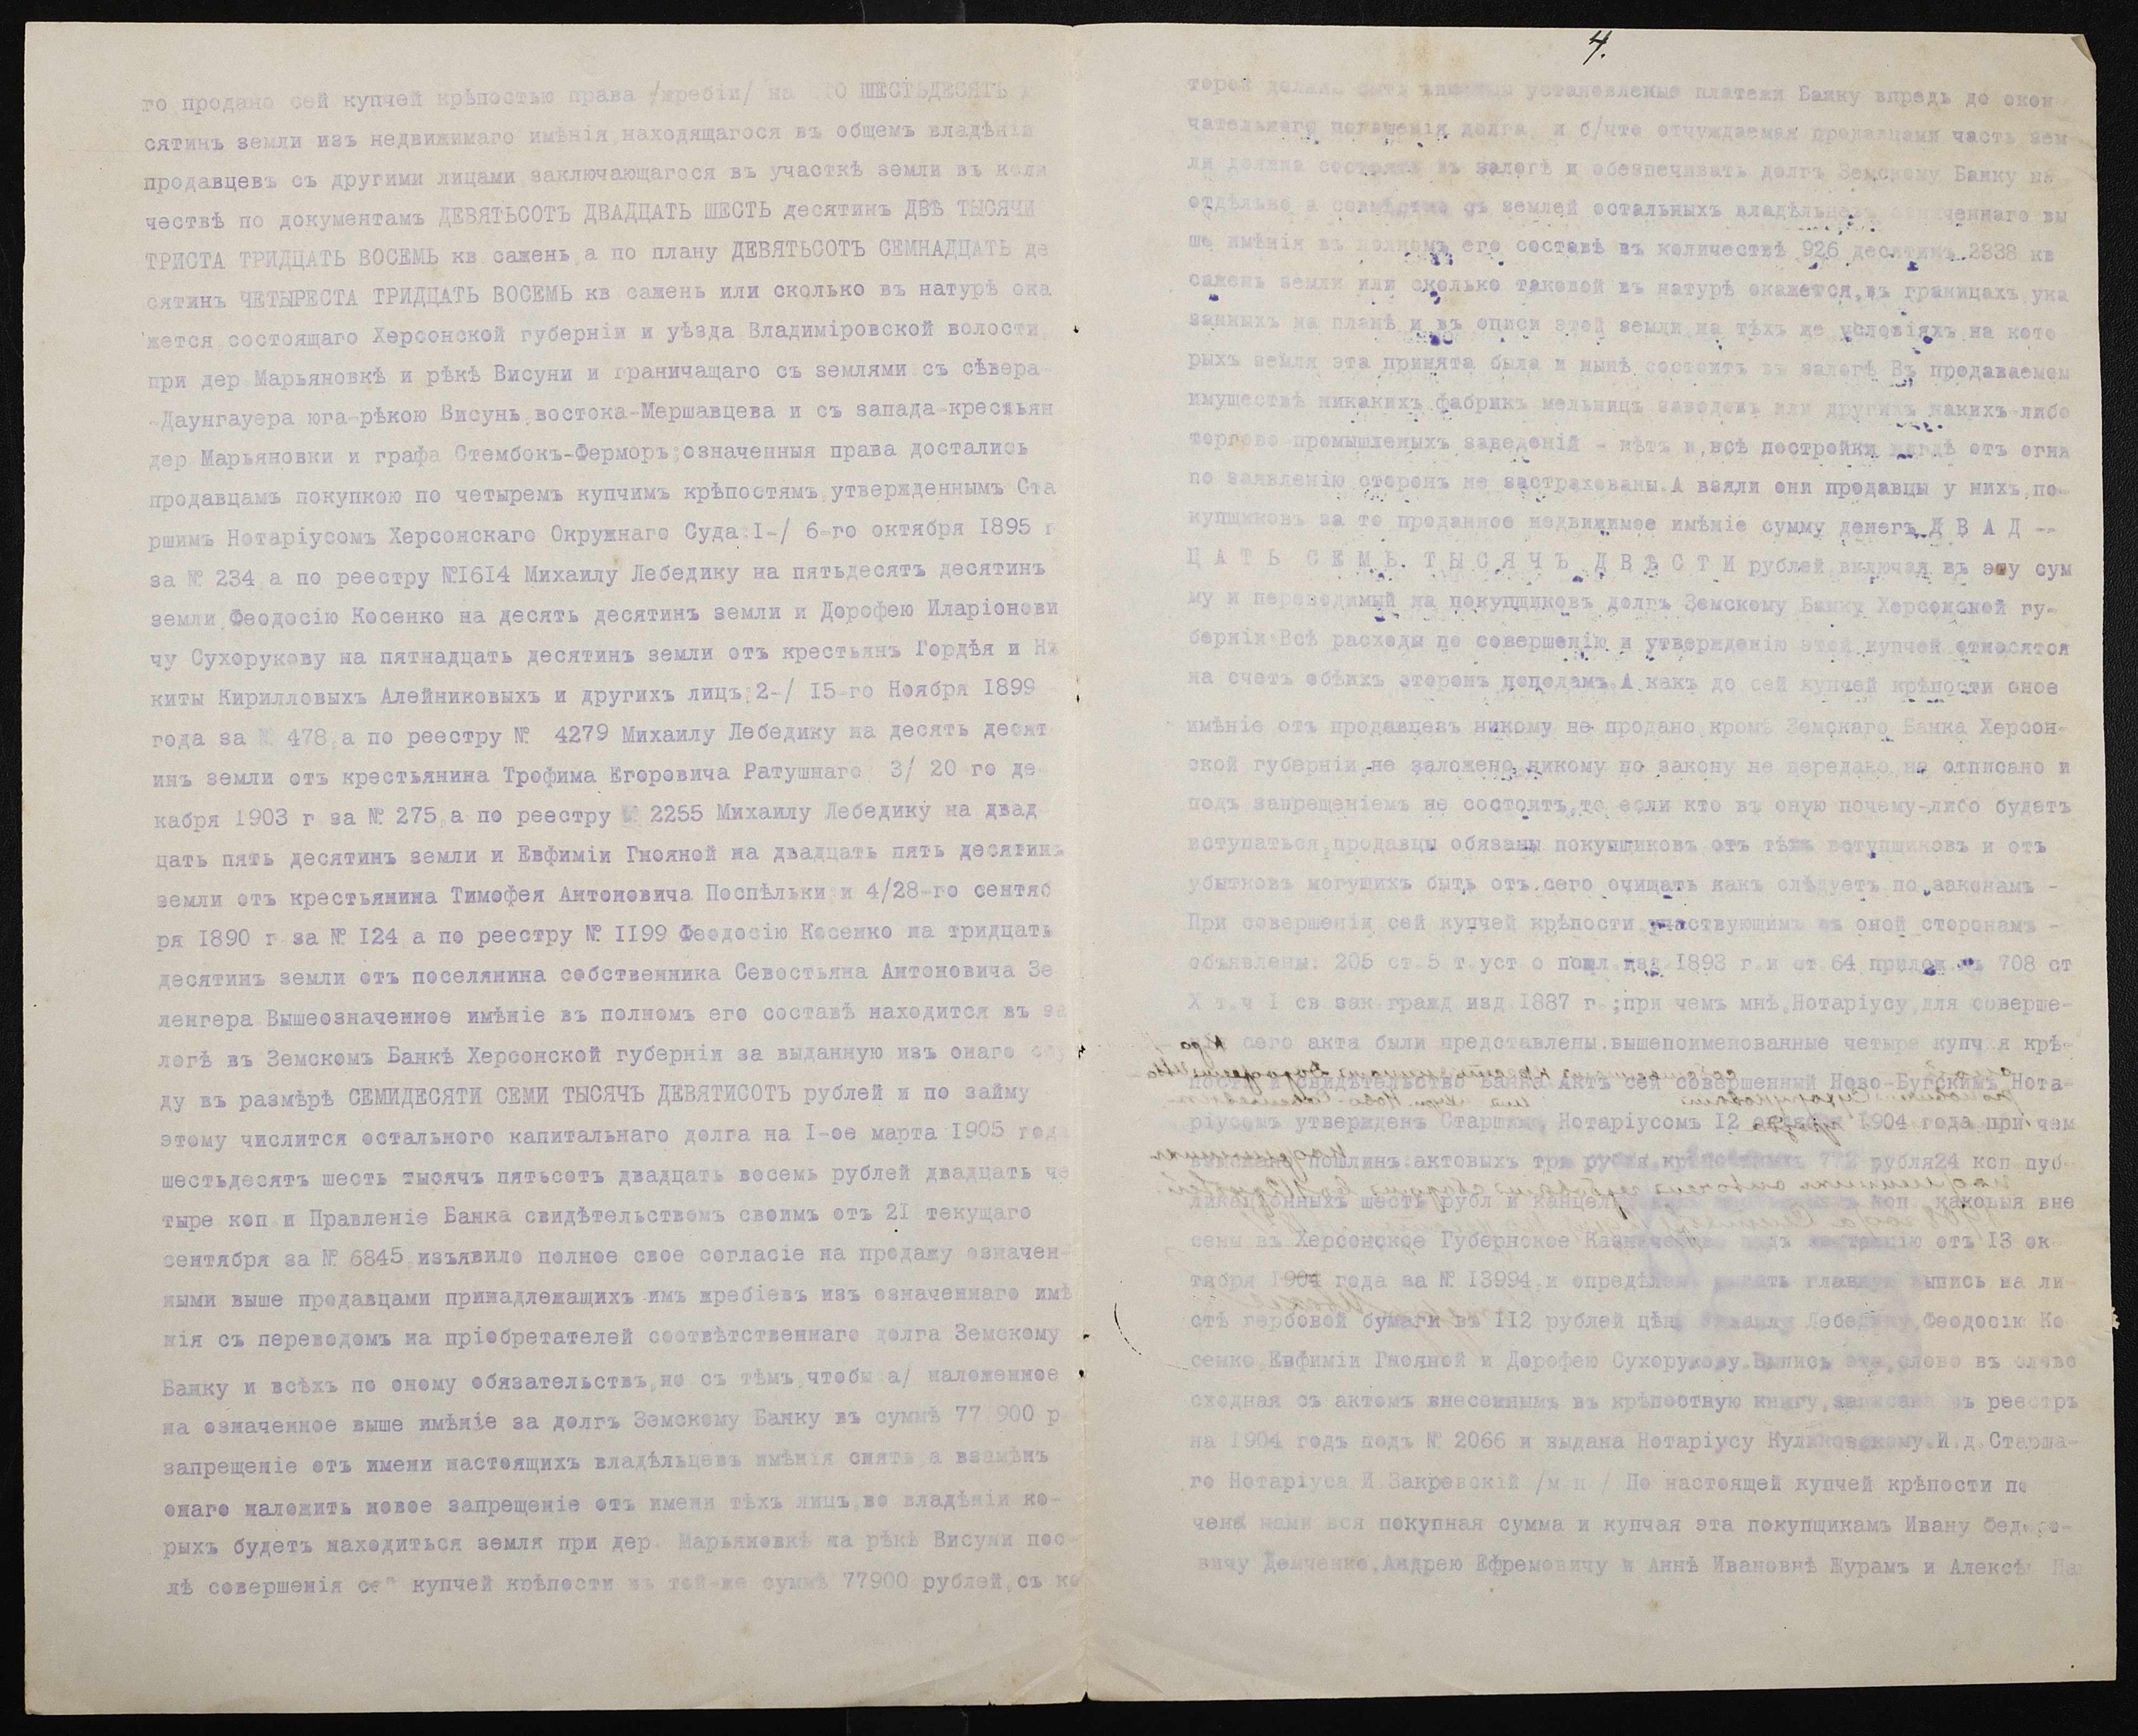 го продано сей купчей крѣпостью права /жребіи/ на ТО ШЕСТЬДЕСЯТЬ
сятинъ земли изъ недвижимаго имѣнія находящагося въ общемъ владѣніи
продавцевъ съ другими лицами заключающагося въ участкѣ земли въ коли
чествѣ по документамъ ДЕВЯТЬСОТЪ ДВАДЦАТЬ ШЕСТЬ десятинъ ДВѢ ТЫСЯЧИ
ТРИСТА ТРИДЦАТЬ ВОСЕМЬ кв сажень а по плану ДЕВЯТЬСОТЪ СЕМНАДЦАТЬ де
сятинъ ЧЕТЫРЕСТА ТРИДЦАТЬ ВОСЕМЬ кв сажень или сколько въ натурѣ ока
жется состоящаго Херсонской губерніи и уѣзда Владиміровской волости
при дер Марьяновкѣ и рѣкѣ Висуни и граничащаго съ землями съ сѣвера-
-Даунгауера юга-рѣкою Висунь востока-Мершавцева и съ запада-крестьян
дер Марьяновки и графа Стембокъ-Ферморъ;означенныя права достались
продавцамъ покупкою по четыремъ купчимъ крѣпостямъ утвержденнымъ Ста
ршимъ Нотаріусомъ Херсонскаго Окружнаго Суда:I-/ 6-го октября 1895 г
за № 234 а по реестру №I6I4 Михаилу Лебедику на пятьдесятъ десятинъ
земли Феодосію Косенко на десять десятинъ земли и Дорофею Иларіонови
чу Сухорукову на пятнадцать десятинъ земли отъ крестьянъ Гордѣя и Ни
киты Кирилловыхъ Алейниковыхъ и другихъ лицъ;2-/ I5-го Ноября I899
года за № 478 а по реестру № 4279 Михаилу Лебедику на десять десят
инъ земли отъ крестьянина Трофима Егоровича Ратушнаго 3/ 20 го де-
кабря I903 г за № 275 а по реестру № 2255 Михаилу Лебедику на двад
цать пять десятинъ земли и Евфиміи Гнояной на двадцать пять десятинъ
земли отъ крестьянина Тимофея Антоновича Поспѣльки и 4/28-го сентяб
ря I890 г за № I24 а по реестру № II99 Феодосію Косенко на тридцать
десятинъ земли отъ поселянина собственника Севостьяна Антоновича Зе
ленгера Вышеозначенное имѣніе въ полномъ его составѣ находится въ за
логѣ въ Земскомъ Банкѣ Херсонской губерніи за выданную изъ онаго ссу
ду въ размѣрѣ СЕМИДЕСЯТИ СЕМИ ТЫСЯЧЪ ДЕВЯТИСОТЪ рублей и по займу
этому числится остального капитальнаго долга на I-ое марта I905 года
шестьдесятъ шесть тысячъ пятьсотъ двадцать восемь рублей двадцать че
тыре коп и Правленіе Банка свидѣтельствомъ своимъ отъ 21 текущаго
сентября за № 6845 изъявило полное свое согласіе на продажу означен-
ными выше продавцами принадлежащихъ имъ жребіевъ изъ означеннаго имѣ
нія съ переводомъ на пріобретателей соотвѣтственнаго долга Земскому
Банку и всѣхъ по оному обязательствъ,но съ тѣмъ,чтобы а/ наложенное
на означенное выше имѣніе за долгъ Земскому Банку въ суммѣ 77.900 р
запрещеніе отъ имени настоящихъ владѣльцевъ имѣнія снять,а взамѣнъ
онаго наложить новое запрещеніе отъ имени тѣхъ лицъ,во владѣніи ко-
рыхъ будетъ находиться земля при дер. Марьяновкѣ на рѣкѣ Висуни пос-
лѣ совершенія сей купчей крѣпости въ той-же суммѣ 77900 рублей,съ ко
4.
торой должны быть вносимы установленые платежи Банку впредь до окон
чательнаго погашенія долга, и б/что отчуждаемая продавцами часть зем
ли должна состоять въ залогѣ и обезпечивать долгъ Земскому Банку не
отдѣльно а совмѣстно съ землей остальныхъ владѣльцевъ означеннаго вы
ше имѣнія въ полномъ его составѣ въ количествѣ 926 десятинъ 2338 кв
сажень земли или сколько таковой въ натурѣ окажется,въ границахъ ука
занныхъ на планѣ и въ описи этой земли,на тѣхъ же условіяхъ на кото
рыхъ земля эта принята была и нынѣ состоитъ въ залогѣ Въ продаваемом
имуществѣ никакихъ фабрикъ мельницъ заводовъ или другихъ какихъ-либо
торгово промышленыхъ заведеній - нѣтъ и,всѣ постройки отъ огня
по заявленію сторонъ не застрахованы.А взяли они продавцы у нихъ,по-
купщиковъ за то проданное недвижимое имѣніе сумму денегъ Д В А Д --
Ц А Т Ь С Е М Ь Т Ы С Я Ч Ъ Д В Ѣ С Т И рублей включая въ эту сум
му и переводимый на покупщиковъ долгъ Земскому Банку Херсонской гу-
берніи Всѣ расходы по совершенію и утвержденію этой купчей относятся
на счетъ обѣихъ сторонъ пополамъ.А какъ до сей купчей крѣпости оное
имѣніе отъ продавцевъ никому не продано кромѣ Земскаго Банка Херсон-
ской губерніи,не заложено никому по закону не передано не отписано и
подъ запрещеніемъ не состоитъ,то если кто въ оную почему-либо будетъ
вступаться,продавцы обязаны покупщиковъ отъ тѣхъ вступщиковъ и отъ
убытковъ могущихъ быть отъ.сего очищать какъ слѣдуетъ по законамъ -
При совершеніи сей купчей крѣпости участвующимъ въ оной сторонамъ -
объявлены: 205 ст.5 т.уст о пошл изд I893 г.и ст 64 прилож къ 708 ст
X т.ч I св зак гражд изд I887 г.;при чемъ мнѣ,Нотаріусу,для соверше-
сего акта были представлены.вышепоименованные четыре купчія крѣ-
пости и свидѣтельство Банка Актъ сей совершенный Ново-Бугскимъ Нота-
ріусомъ утвержденъ Старшимъ Нотаріусомъ I2 I904 года при чем
взыскано пошлинъ:актовыхъ три рубля,крѣпостныхъ рубля24 коп пуб-
ликаціонныхъ шесть рубл и канцеляр коп какоыя вне
сены въ Херсонское Губернское Казначейство подъ квитанцію отъ I3 ок
тября I904 года за № I3994 и опредѣлено выдать главную выпись на ли
стѣ гербовой бумаги въ II2 рублей цѣн Михаилу Лебедику,Феодосію Ко
сенко,Евфиміи Гнояной и Дорофею Сухорукову.Выпись эта,слово въ слово
сходная съ актомъ внесеннымъ въ крѣпостную книгу,записана въ реестръ
на I904 годъ подъ № 2066 и выдана Нотаріусу Куликовскому.И.д.Старша-
го Нотаріуса И Закревскій /м п / По настоящей купчей крѣпости по
чена нами вся покупная сумма и купчая эта покупщикамъ Ивану Федоро-
вичу Демченко,Андрею Ефремовичу и Аннѣ Ивановнѣ Журамъ и Алексѣ